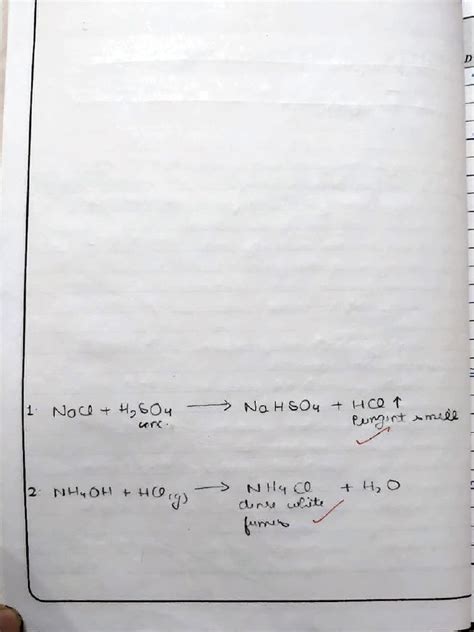 D
1. NaCl + H₂SO₄ → NaHSO₄ + HCl ↑
conc. Pungint smell
2. NH₄OH + HCl(g) → NH₄Cl + H₂O
dense white
fumes